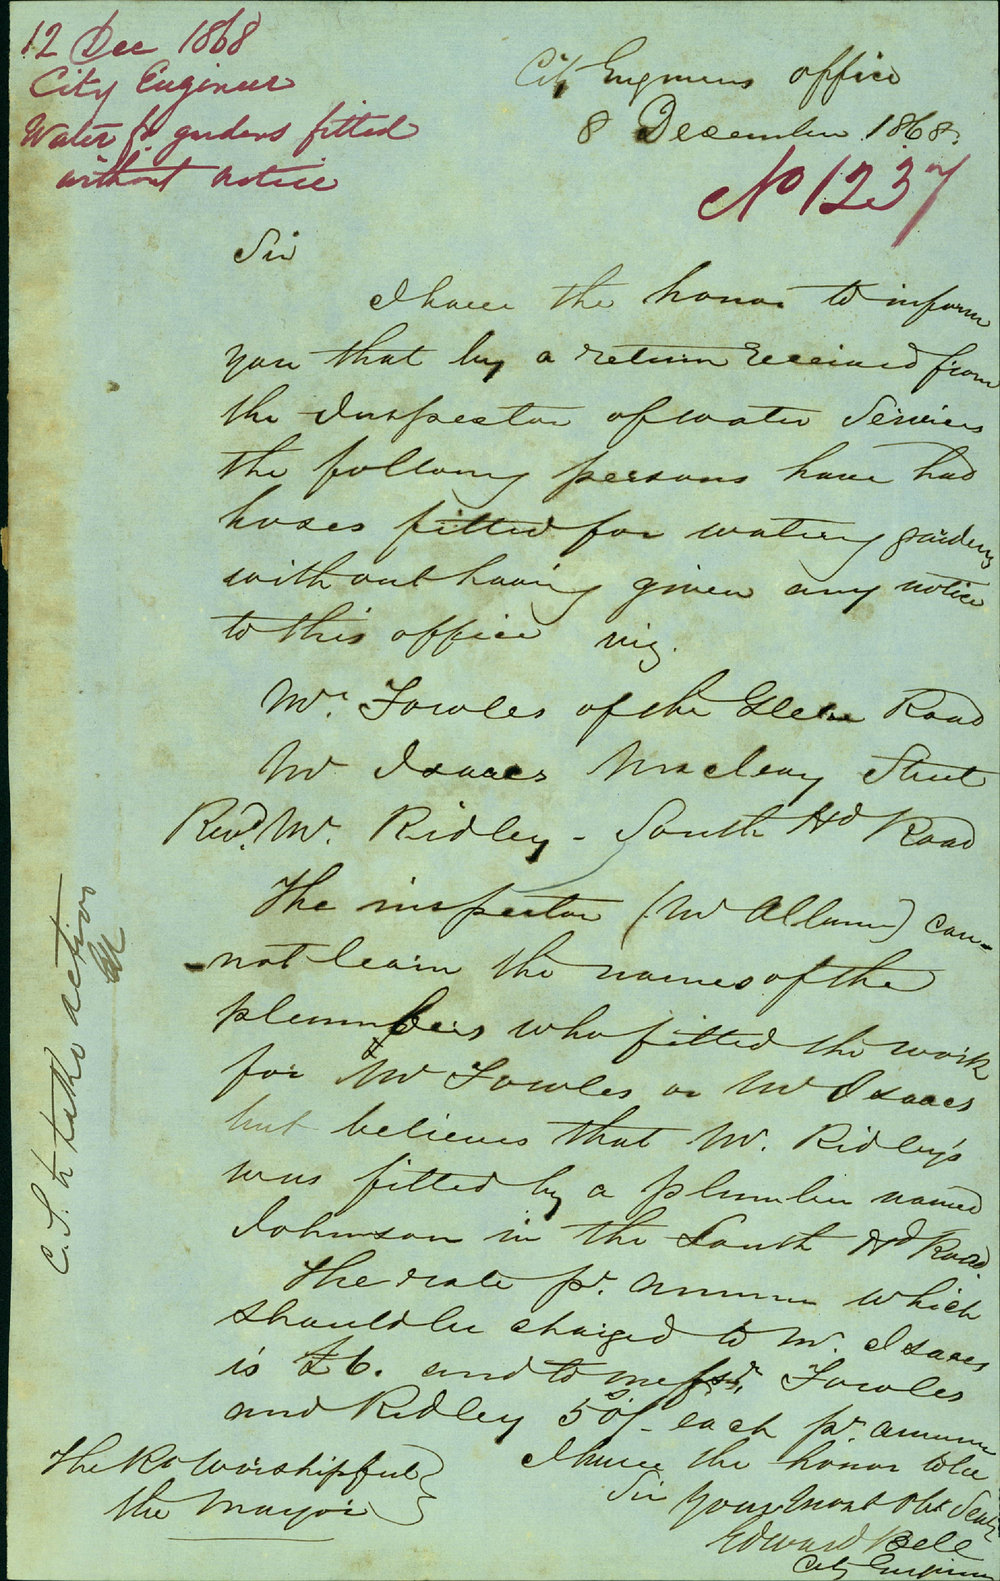 12 Dec 1868
City Engineer
Water for gardens fitted
without notice
City Engineers office
8 December 1868.
No 1237
Sir
I have the honor to inform
you that by a return received from
the Inspector of water Services
the following persons have had
hoses fitted for watering gardens
without having given any notice
to this office viz.
Mr. Fowles of the Glebe Road
Mr Isaacs Macleay Street
Revd. Mr. Ridley - South Hd Road
The inspector (Mr Allum) can-
-not learn the names of the
plumbers who fitted the work
for Mr Fowles or Mr Isaacs
but believes that Mr. Ridley's
was fitted by a plumber named
Johnson in the South Hd Road.
The rate pr. annum which
should be charged to Mr. Isaacs
is £6. and to Messrs. Fowles
and Ridley 50/- each pr. annum
I have the honor to be
Sir your most Obt Servt
Edward Bell
City Engineer
The Rt Worshipful
the Mayor
C. S. to take action